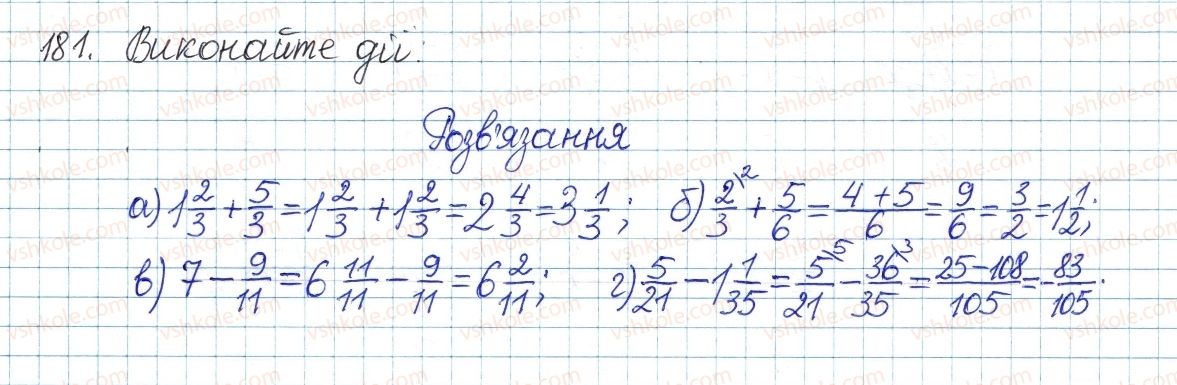 181. Виконайте дії:
Розв'язання
а) 1 2/3 + 5/3 = 1 2/3 + 1 2/3 = 2 4/3 = 3 1/3; б) 2/3 \2 + 5/6 = (4+5)/6 = 9/6 = 3/2 = 1 1/2;
в) 7 - 9/11 = 6 11/11 - 9/11 = 6 2/11; г) 5/21 - 1 1/35 = 5/21 \5 - 36/35 \3 = (25-108)/105 = -83/105.
vshkole.com